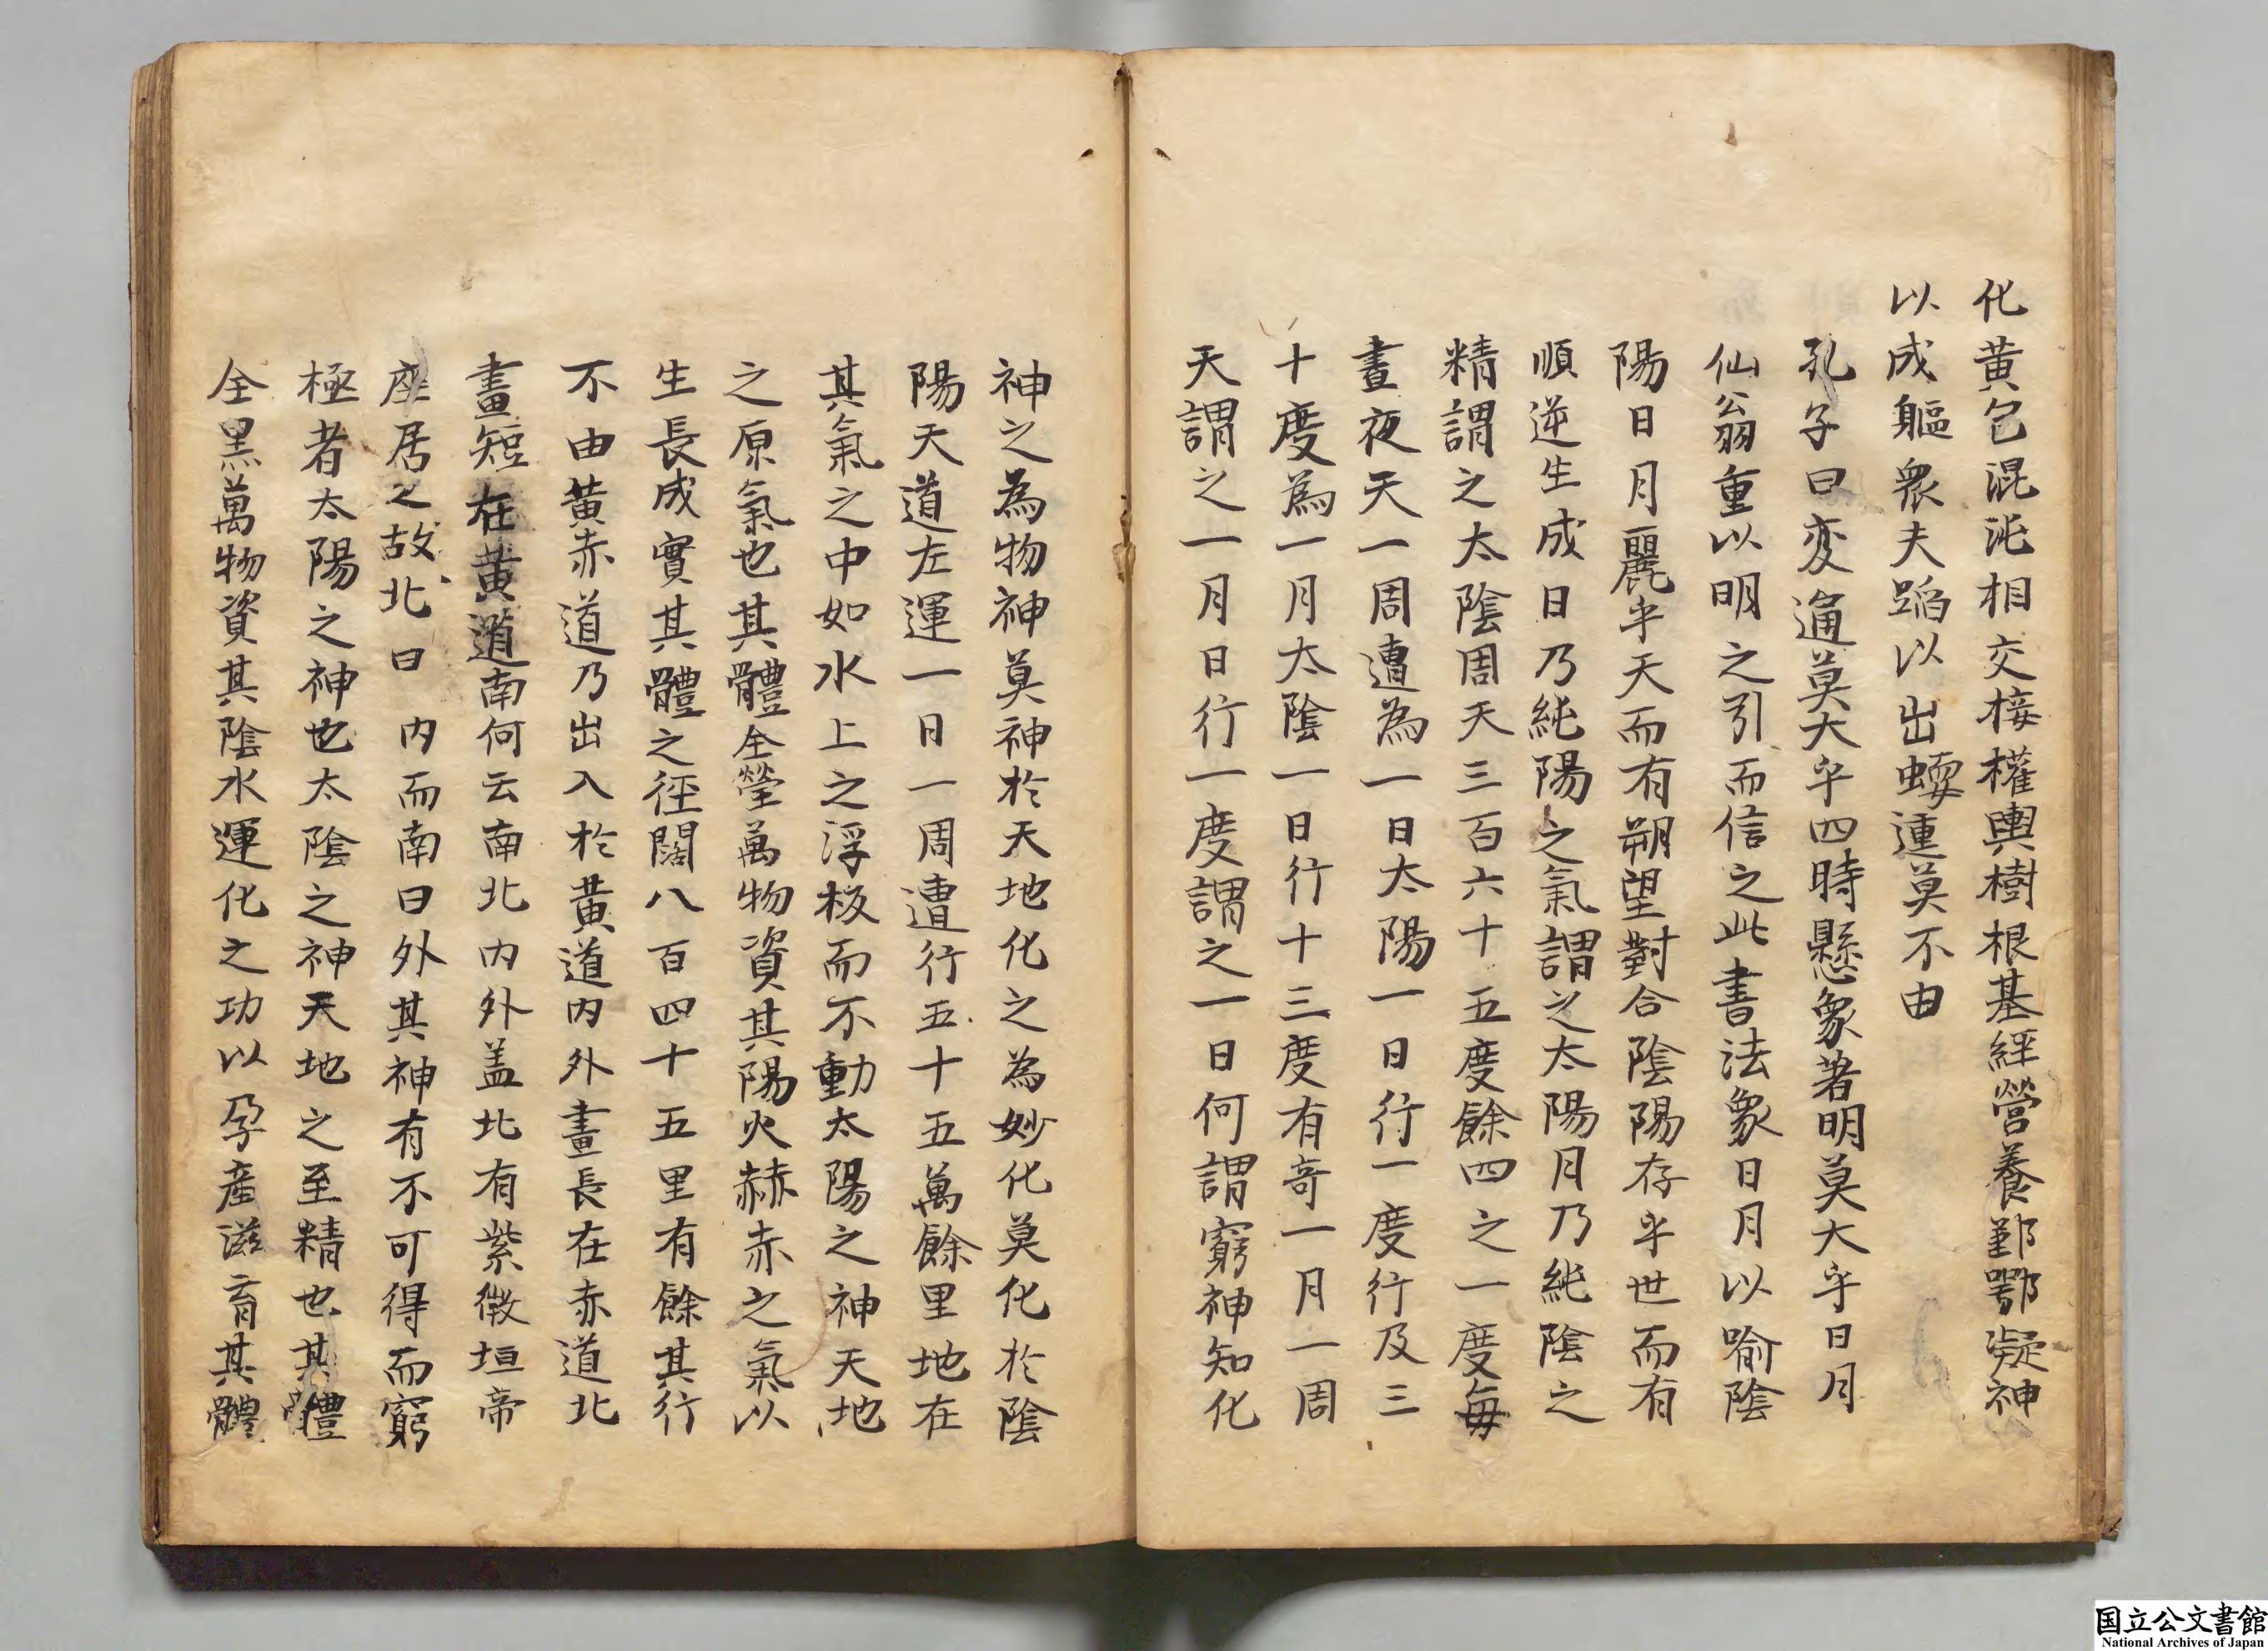 化黃包混沌相交接權輿樹根基經營養鄞鄂凝神
以成軀衆夫蹈以出蝡運莫不由
孔子曰変通莫大乎四時懸象著明莫大乎日月
仙翁重以明之引而信之此書法象日月以喻陰
陽日月麗乎天而有朔望對合陰陽存乎世而有
順逆生成日乃純陽之氣謂之太陽月乃純陰之
精謂之太陰周天三百六十五度餘四之一度每
晝夜天一周遭為一日太陽一日行一度行及三
十度為一月太陰一日行十三度有奇一月一周
天謂之一月日行一度謂之一日何謂窮神知化
神之為物神莫神於天地化之為妙化莫化於陰
陽天道左運一日一周遭行五十五萬餘里地在
其氣之中如水上之浮板而不動太陽之神天地
之原氣也其體全瑩萬物資其陽火赫赤之氣以
生長成實其體之徑闊八百四十五里有餘其行
不由黃赤道乃出入於黃道內外晝長在赤道北
晝短在黃道南何云南北內外盖北有紫微垣帝
座居之故北曰內而南曰外其神有不可得而窮
極者太陽之神也太陰之神天地之至精也其體
全黑萬物資其陰水運化之功以孕產滋育其體
国立公文書館
National Archives of Japan